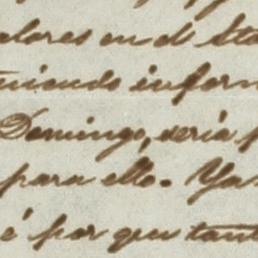 alores en el Sto
niendo inform
Domingo, seria p
para ello. Ya
é por que tant